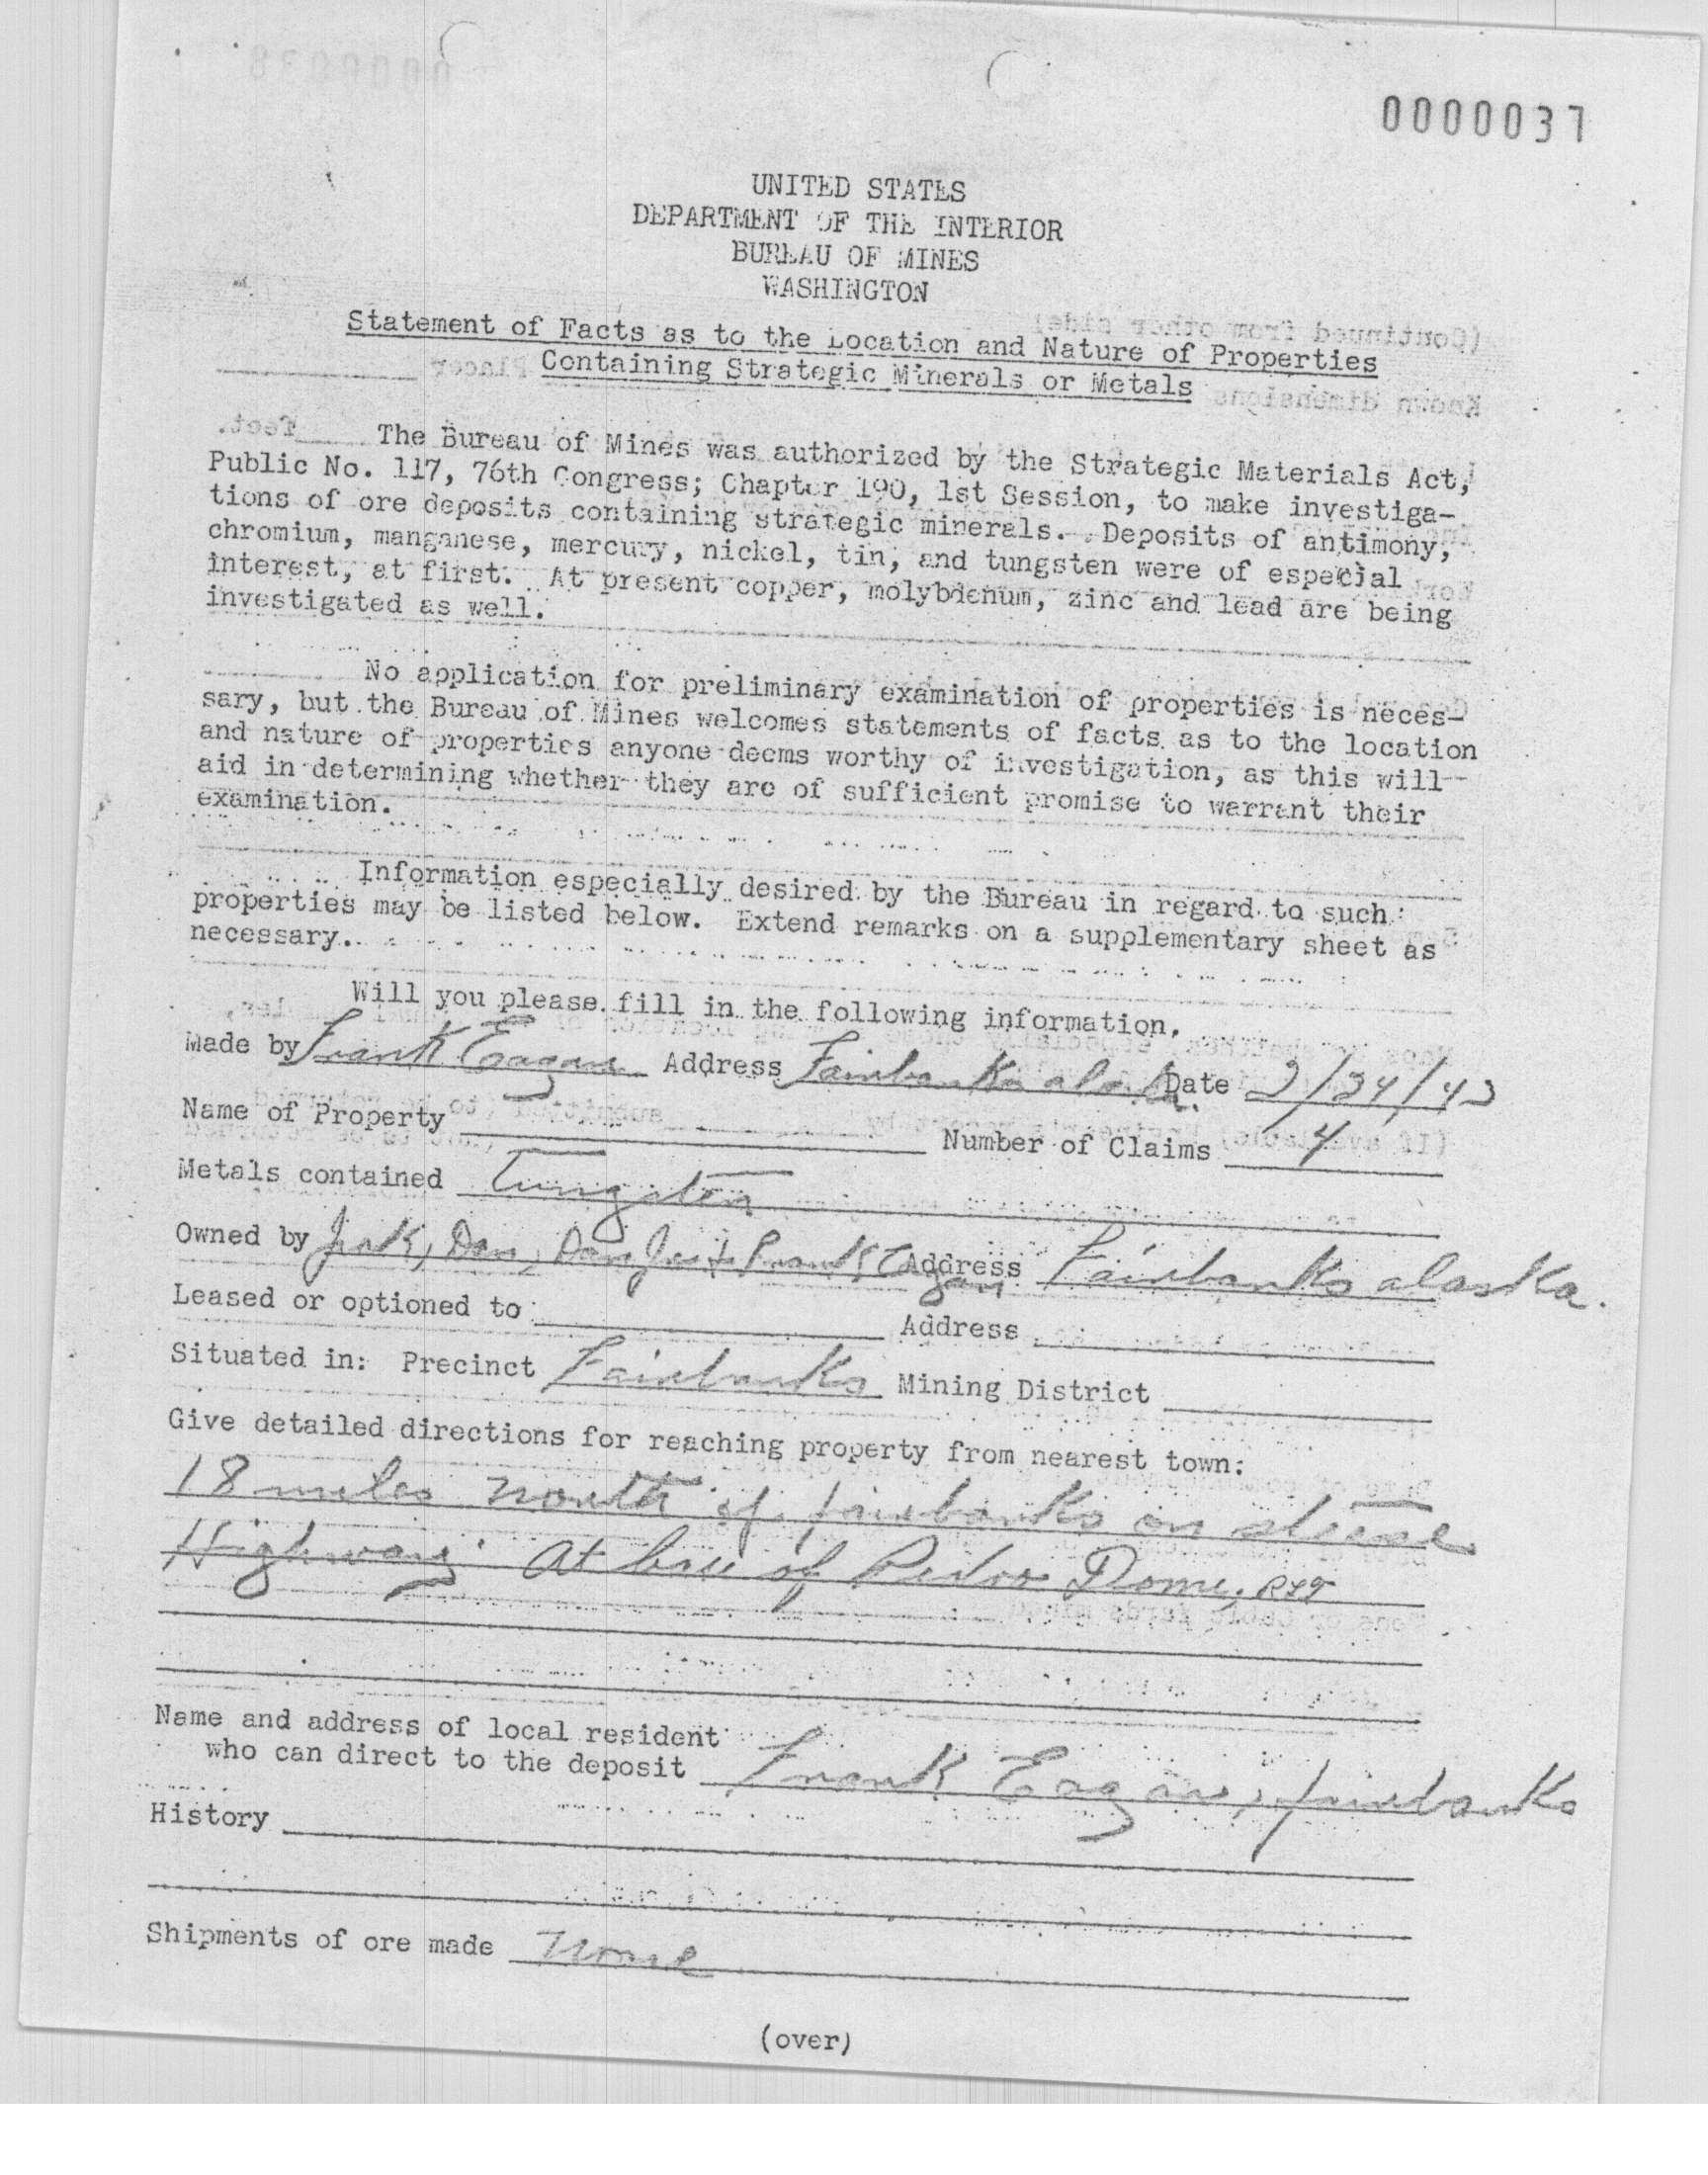 0000037
UNITED STATES
DEPARTMENT OF THE INTERIOR
BUREAU OF MINES
WASHINGTON
Statement of Facts as to the Location and Nature of Properties
Containing Strategic Minerals or Metals
The Bureau of Mines was authorized by the Strategic Materials Act,
Public No. 117, 76th Congress; Chapter 190, 1st Session, to make investiga-
tions of ore deposits containing strategic minerals. Deposits of antimony,
chromium, manganese, mercury, nickel, tin, and tungsten were of especial
interest, at first. At present copper, molybdenum, zinc and lead are being
investigated as well.
No application for preliminary examination of properties is neces-
sary, but the Bureau of Mines welcomes statements of facts as to the location
and nature of properties anyone deems worthy of investigation, as this will
aid in determining whether they are of sufficient promise to warrant their
examination.
Information especially desired by the Bureau in regard to such
properties may be listed below. Extend remarks on a supplementary sheet as
necessary.
Will you please fill in the following information.
Made by Frank Eagan Address Fairbanks alaska. Date 2/24/43
Name of Property Number of Claims 4
Metals contained Tungsten
Owned by Jack, Dan, Frank Eagan Address Fairbanks alaska.
Leased or optioned to Address
Situated in: Precinct Fairbanks Mining District
Give detailed directions for reaching property from nearest town:
18 miles north of fairbanks on steese
Highway. At base of Pedro Dome,
Name and address of local resident
who can direct to the deposit Frank Eagan, fairbanks
History
Shipments of ore made none
(over)